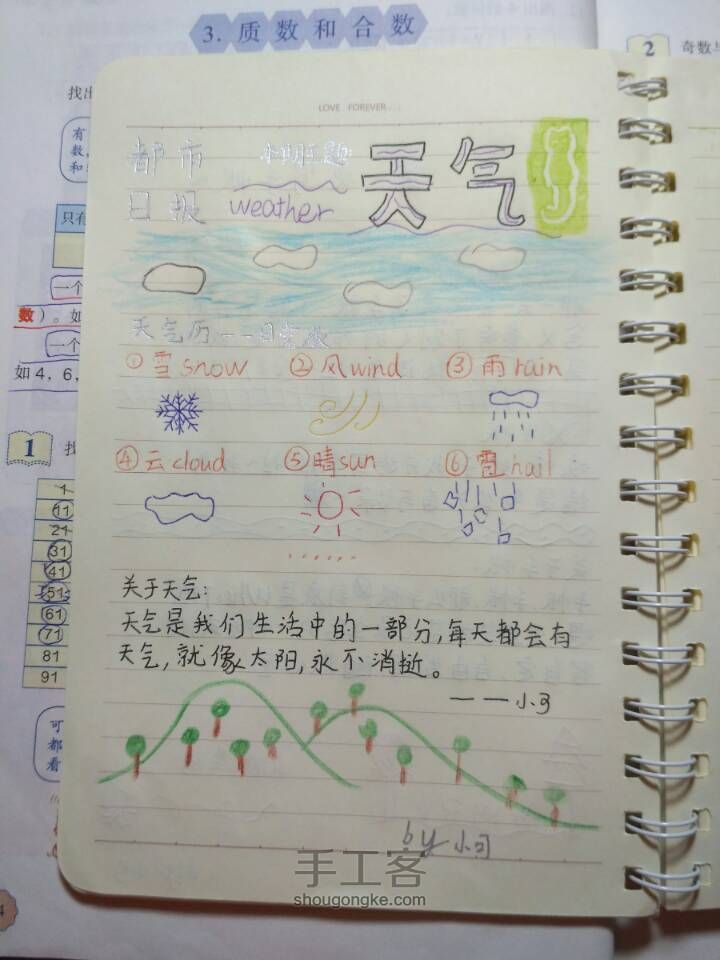 3. 质数和合数
2 奇数与
找出
有
数,
和
只有
一个
数)。如
一个
如 4, 6,
1 找
1
11
21
31
41
51
61
71
81
91
可
都
看
4
LOVE FOREVER...
都市 本期主题: 天气
日报 weather
天气历——日常版
①雪snow ②风wind ③雨rain
④云cloud ⑤晴sun ⑥雹hail
......
关于天气:
天气是我们生活中的一部分,每天都会有
天气,就像太阳,永不消逝。
——小可
by 小可
手工客
shougongke.com